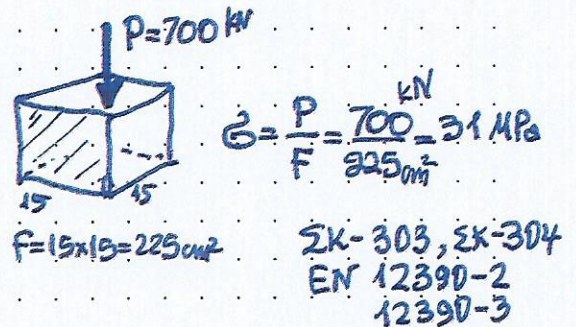 P=700 kN
б = P/F = 700 kN/225 cm² = 31 MPa
15 15
F=15x15=225cm²
ΣΚ-303, ΣΚ-304
EN 12390-2
12390-3